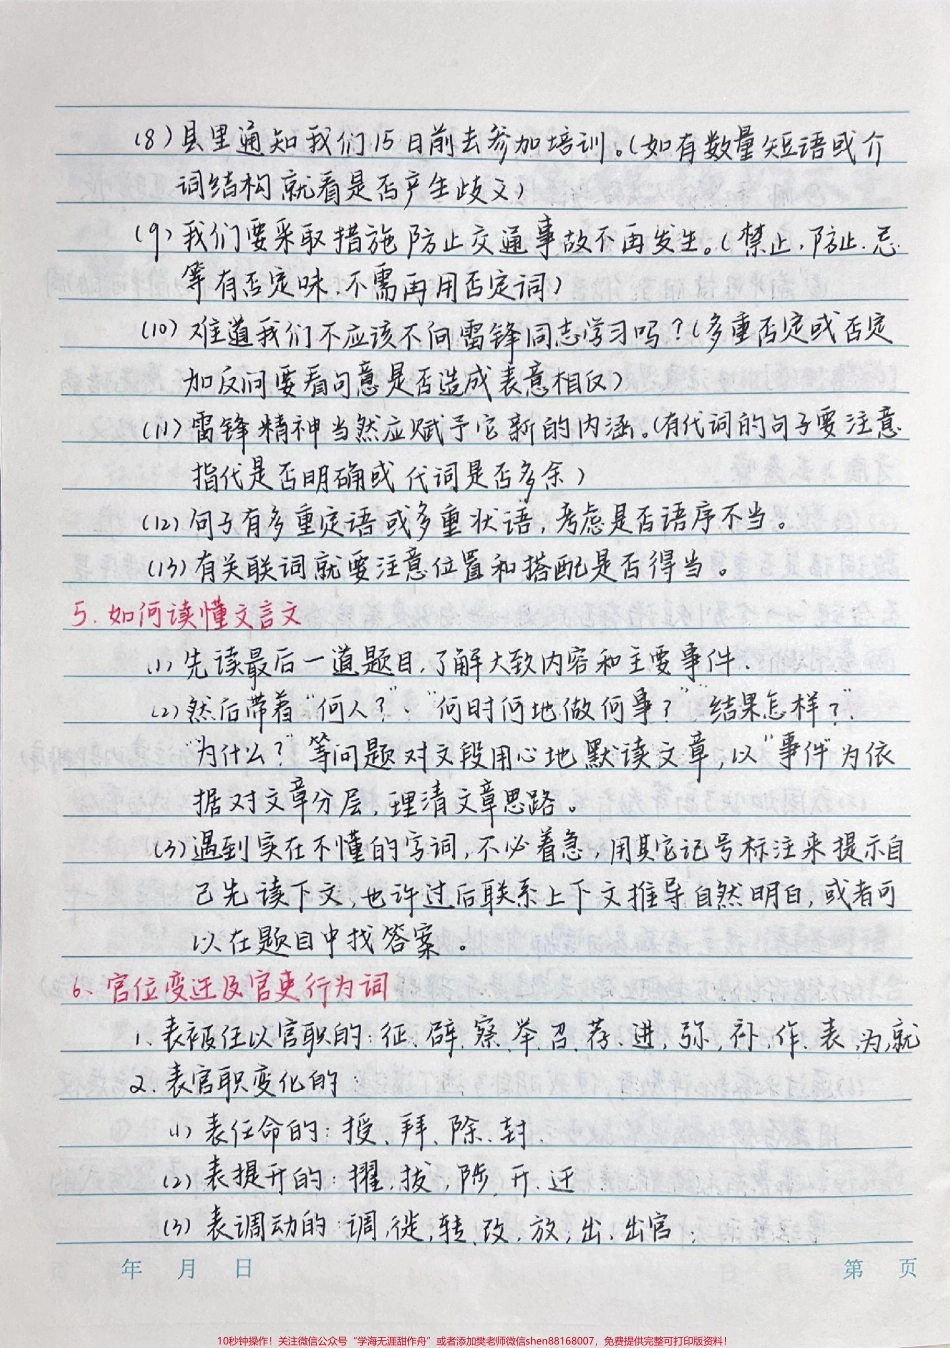 (8)县里通知我们15日前去参加培训。(如有数量短语或介
词结构就看是否产生歧义)
(9)我们要采取措施防止交通事故不再发生。(禁止、防止、忌
等有否定味,不需再用否定词)
(10)难道我们不应该不向雷锋同志学习吗?(多重否定或否定
加反问要看句意是否造成表意相反)
(11)雷锋精神当然应赋予它新的内涵。(有代词的句子要注意
指代是否明确或代词是否多余)
(12)句子有多重定语或多重状语,考虑是否语序不当。
(13)有关联词就要注意位置和搭配是否得当。
5.如何读懂文言文
(1)先读最后一道题目,了解大致内容和主要事件.
(2)然后带着“何人?”“何时何地做何事?”“结果怎样?”.
“为什么?”等问题对文段用心地默读文章,以“事件”为依
据对文章分层,理清文章思路。
(3)遇到实在不懂的字词,不必着急,用其它记号标注来提示自
己先读下文,也许过后联系上下文推导自然明白,或者可
以在题目中找答案。
6、官位变迁及官吏行为词
1.表被任以官职的:征、辟、察、举、召、荐、进、弥、补、作、表、为、就
2.表官职变化的:
(1)表任命的:授、拜、除、封.
(2)表提升的:擢、拔、陟、升、迁.
(3)表调动的:调、徙、转、改、放、出、出官;
年 月 日 第 页
10秒钟操作!关注微信公众号“学海无涯甜作舟”或者添加樊老师微信shen88168007,免费提供完整可打印版资料!